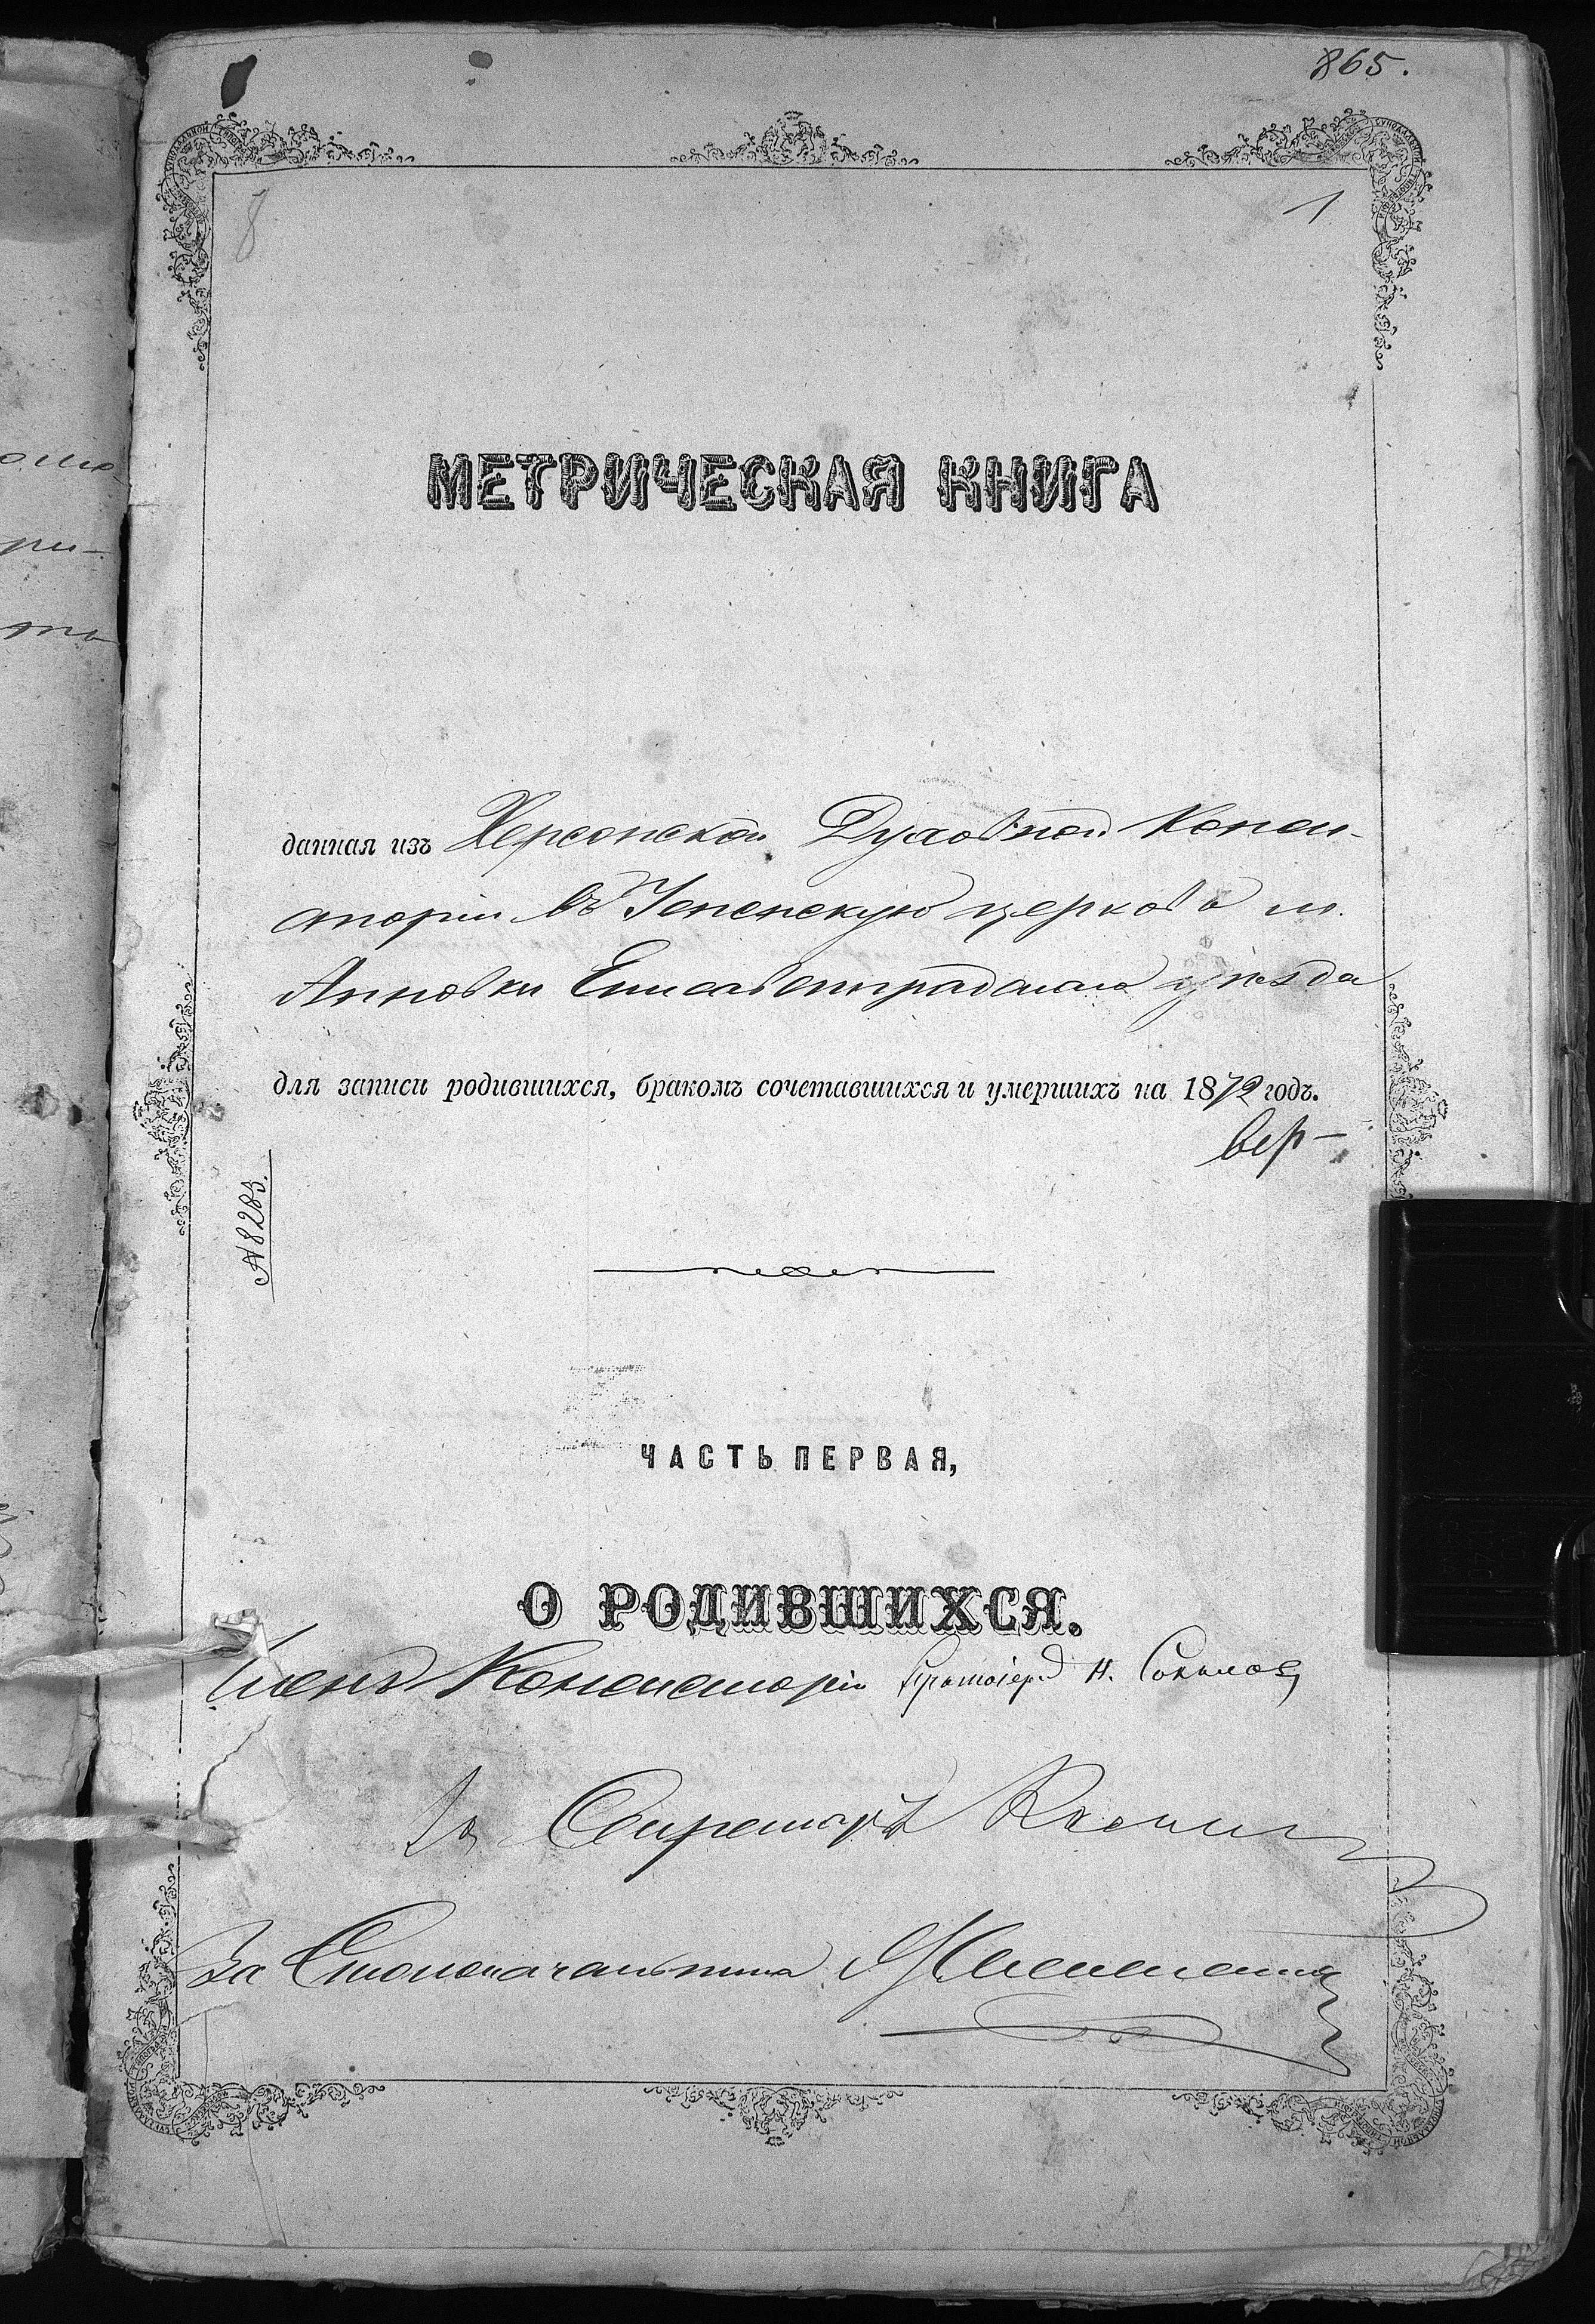 865.
1
8
МЕТРИЧЕСКАЯ КНИГА
данная изъ Херсонской Духовной Конси-
сторіи въ Успенскую церковь м.
Анновки Елисаветградскаго уѣзда
для записи родившихся, бракомъ сочетавшихся и умершихъ на 1872 годъ.
вер-
№ 8283.
ЧАСТЬ ПЕРВАЯ,
О РОДИВШИХСЯ.
Членъ Консисторіи Протоіерей Н. Соколов
За Секретаря
За Столоначальника